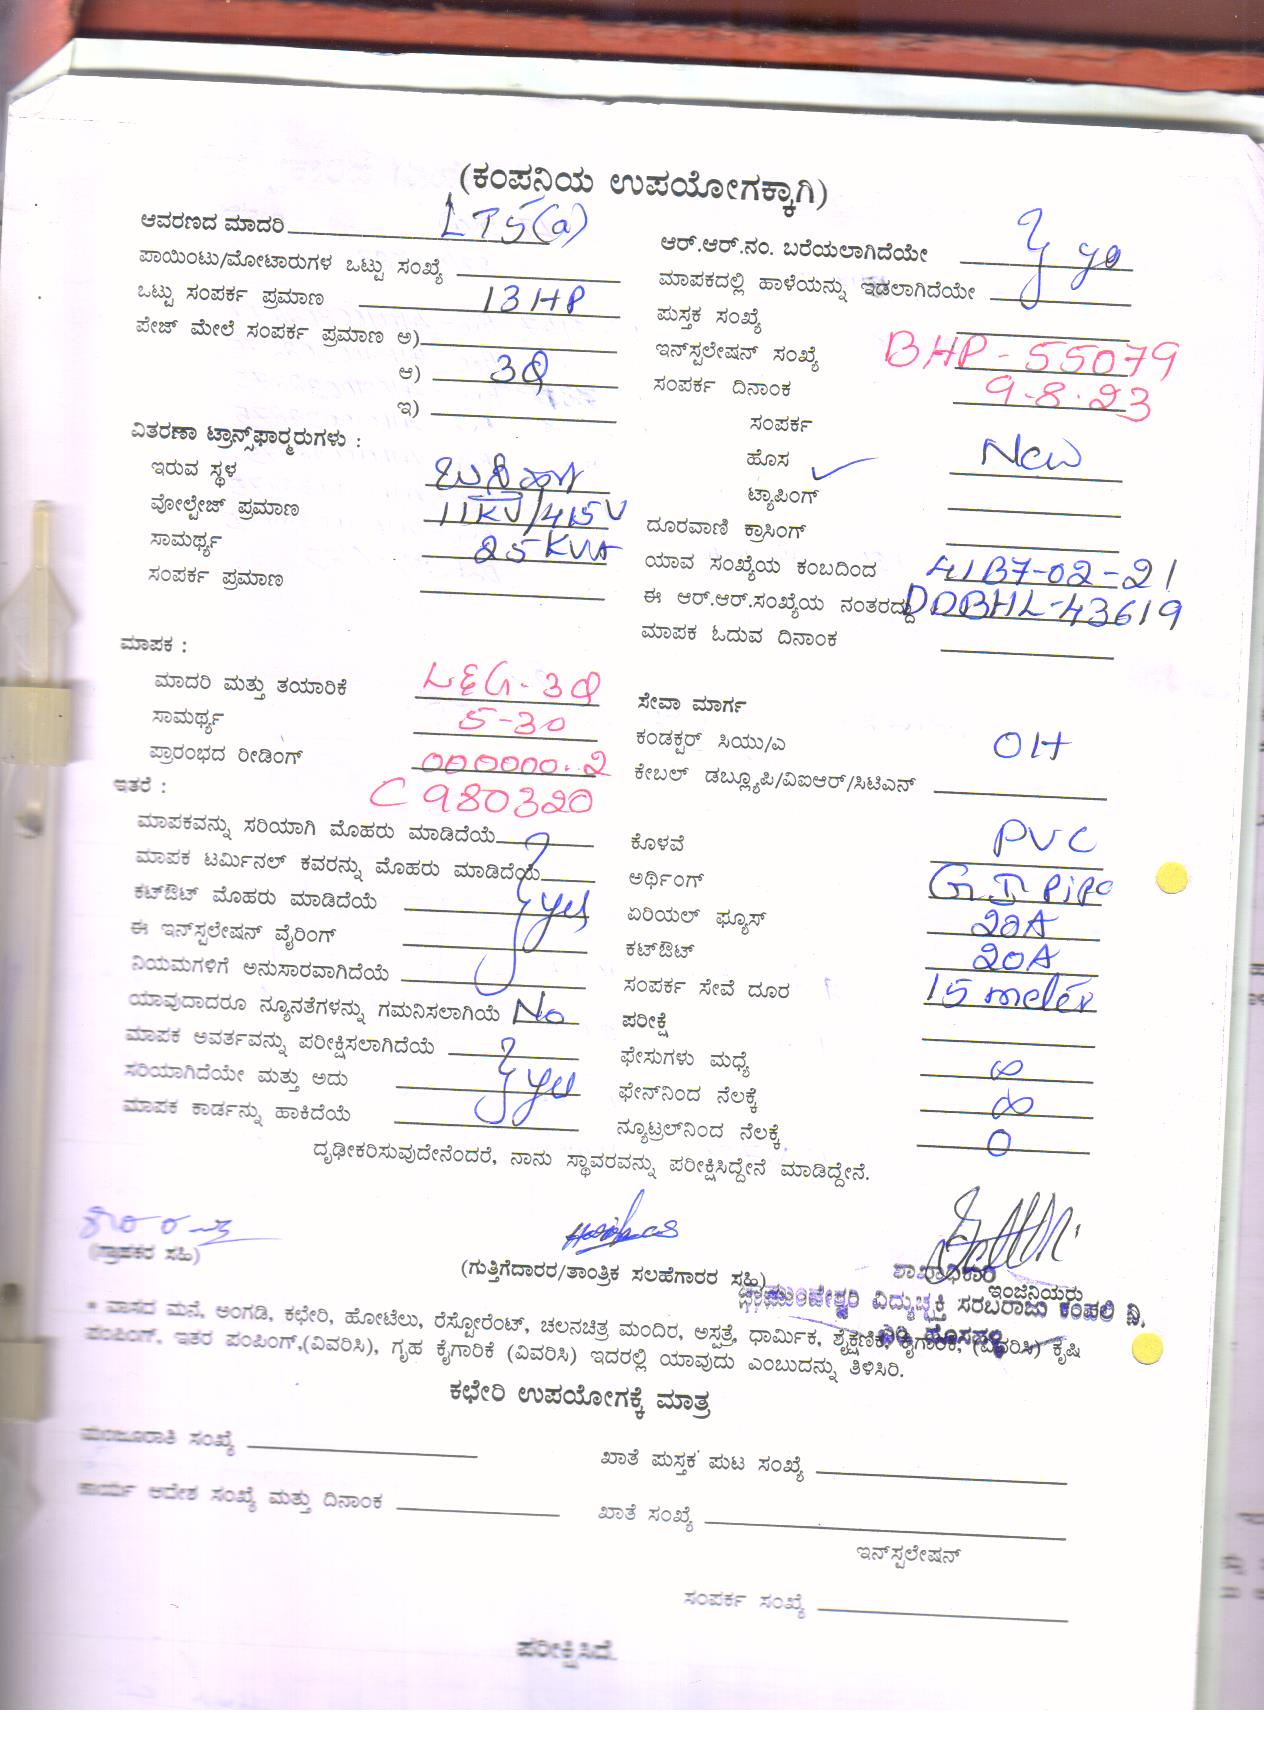 (ಕಂಪನಿಯ ಉಪಯೋಗಕ್ಕಾಗಿ)
ಆವರಣದ ಮಾದರಿ LT5(a)
ಪಾಯಿಂಟು/ಮೋಟಾರುಗಳ ಒಟ್ಟು ಸಂಖ್ಯೆ
ಒಟ್ಟು ಸಂಪರ್ಕ ಪ್ರಮಾಣ 13HP
ಪೇಜ್ ಮೇಲೆ ಸಂಪರ್ಕ ಪ್ರಮಾಣ ಅ)
ಆ) 3Φ
ಇ)
ವಿತರಣಾ ಟ್ರಾನ್ಸ್‌ಫಾರ್ಮರುಗಳು :
ಇರುವ ಸ್ಥಳ
ವೋಲ್ಟೇಜ್ ಪ್ರಮಾಣ 11KV/415V
ಸಾಮರ್ಥ್ಯ 25 KVA
ಸಂಪರ್ಕ ಪ್ರಮಾಣ
ಆರ್.ಆರ್.ನಂ. ಬರೆಯಲಾಗಿದೆಯೇ
ಮಾಪಕದಲ್ಲಿ ಹಾಳೆಯನ್ನು ಇಡಲಾಗಿದೆಯೇ
ಪುಸ್ತಕ ಸಂಖ್ಯೆ
ಇನ್‌ಸ್ಟಲೇಷನ್ ಸಂಖ್ಯೆ BHP-55079
ಸಂಪರ್ಕ ದಿನಾಂಕ 9-8-23
ಸಂಪರ್ಕ
ಹೊಸ ✓ New
ಟ್ಯಾಪಿಂಗ್
ದೂರವಾಣಿ ಕ್ರಾಸಿಂಗ್
ಯಾವ ಸಂಖ್ಯೆಯ ಕಂಬದಿಂದ 41B7-02-21
ಈ ಆರ್.ಆರ್.ಸಂಖ್ಯೆಯ ನಂತರದ್ದು DDBHL-43619
ಮಾಪಕ ಓದುವ ದಿನಾಂಕ
ಮಾಪಕ :
ಮಾದರಿ ಮತ್ತು ತಯಾರಿಕೆ L&G-3Φ
ಸಾಮರ್ಥ್ಯ 5-30
ಪ್ರಾರಂಭದ ರೀಡಿಂಗ್ 000000.2
ಇತರೆ : C980320
ಮಾಪಕವನ್ನು ಸರಿಯಾಗಿ ಮೊಹರು ಮಾಡಿದೆಯೆ
ಮಾಪಕ ಟರ್ಮಿನಲ್ ಕವರನ್ನು ಮೊಹರು ಮಾಡಿದೆಯೆ
ಕಟ್‌ಔಟ್ ಮೊಹರು ಮಾಡಿದೆಯೆ yes
ಈ ಇನ್‌ಸ್ಟಲೇಷನ್ ವೈರಿಂಗ್
ನಿಯಮಗಳಿಗೆ ಅನುಸಾರವಾಗಿದೆಯೆ
ಯಾವುದಾದರೂ ನ್ಯೂನತೆಗಳನ್ನು ಗಮನಿಸಲಾಗಿಯೆ No
ಮಾಪಕ ಅವರ್ತವನ್ನು ಪರೀಕ್ಷಿಸಲಾಗಿದೆಯೆ
ಸರಿಯಾಗಿದೆಯೇ ಮತ್ತು ಅದು yes
ಮಾಪಕ ಕಾರ್ಡನ್ನು ಹಾಕಿದೆಯೆ
ಸೇವಾ ಮಾರ್ಗ
ಕಂಡಕ್ಟರ್ ಸಿಯು/ಎ OH
ಕೇಬಲ್ ಡಬ್ಲ್ಯೂಪಿ/ವಿಐಆರ್/ಸಿಟಿಎನ್
ಕೊಳವೆ PVC
ಅರ್ಥಿಂಗ್ GI Pipe
ಏರಿಯಲ್ ಫ್ಯೂಸ್ 20A
ಕಟ್‌ಔಟ್ 20A
ಸಂಪರ್ಕ ಸೇವೆ ದೂರ 15 meter
ಪರೀಕ್ಷೆ
ಫೇಸುಗಳು ಮಧ್ಯೆ ∞
ಫೇನ್‌ನಿಂದ ನೆಲಕ್ಕೆ ∞
ನ್ಯೂಟ್ರಲ್‌ನಿಂದ ನೆಲಕ್ಕೆ 0
ದೃಢೀಕರಿಸುವುದೇನೆಂದರೆ, ನಾನು ಸ್ಥಾವರವನ್ನು ಪರೀಕ್ಷಿಸಿದ್ದೇನೆ ಮಾಡಿದ್ದೇನೆ.
(ಗ್ರಾಹಕರ ಸಹಿ)
(ಗುತ್ತಿಗೆದಾರರ/ತಾಂತ್ರಿಕ ಸಲಹೆಗಾರರ ಸಹಿ)
ಶಾಖಾಧಿಕಾರಿ
ಇಂಜಿನಿಯರು
ಚಾಮುಂಡೇಶ್ವರಿ ವಿದ್ಯುಚ್ಛಕ್ತಿ ಸರಬರಾಜು ಕಂಪನಿ ನಿ.
* ವಾಸದ ಮನೆ, ಅಂಗಡಿ, ಕಛೇರಿ, ಹೋಟೆಲು, ರೆಸ್ಟೋರೆಂಟ್, ಚಲನಚಿತ್ರ ಮಂದಿರ, ಅಸ್ಪತ್ರೆ, ಧಾರ್ಮಿಕ, ಶೈಕ್ಷಣಿಕ, ಕೈಗಾರಿಕೆ, (ವಿವರಿಸಿ) ಕೃಷಿ
ಪಂಪಿಂಗ್, ಇತರ ಪಂಪಿಂಗ್,(ವಿವರಿಸಿ), ಗೃಹ ಕೈಗಾರಿಕೆ (ವಿವರಿಸಿ) ಇದರಲ್ಲಿ ಯಾವುದು ಎಂಬುದನ್ನು ತಿಳಿಸಿರಿ.
ಕಛೇರಿ ಉಪಯೋಗಕ್ಕೆ ಮಾತ್ರ
ಮಂಜೂರಾತಿ ಸಂಖ್ಯೆ
ಖಾತೆ ಪುಸ್ತಕ ಪುಟ ಸಂಖ್ಯೆ
ಕಾರ್ಯ ಆದೇಶ ಸಂಖ್ಯೆ ಮತ್ತು ದಿನಾಂಕ
ಖಾತೆ ಸಂಖ್ಯೆ
ಇನ್‌ಸ್ಟಲೇಷನ್
ಸಂಪರ್ಕ ಸಂಖ್ಯೆ
ಪರೀಕ್ಷಿಸಿದೆ.